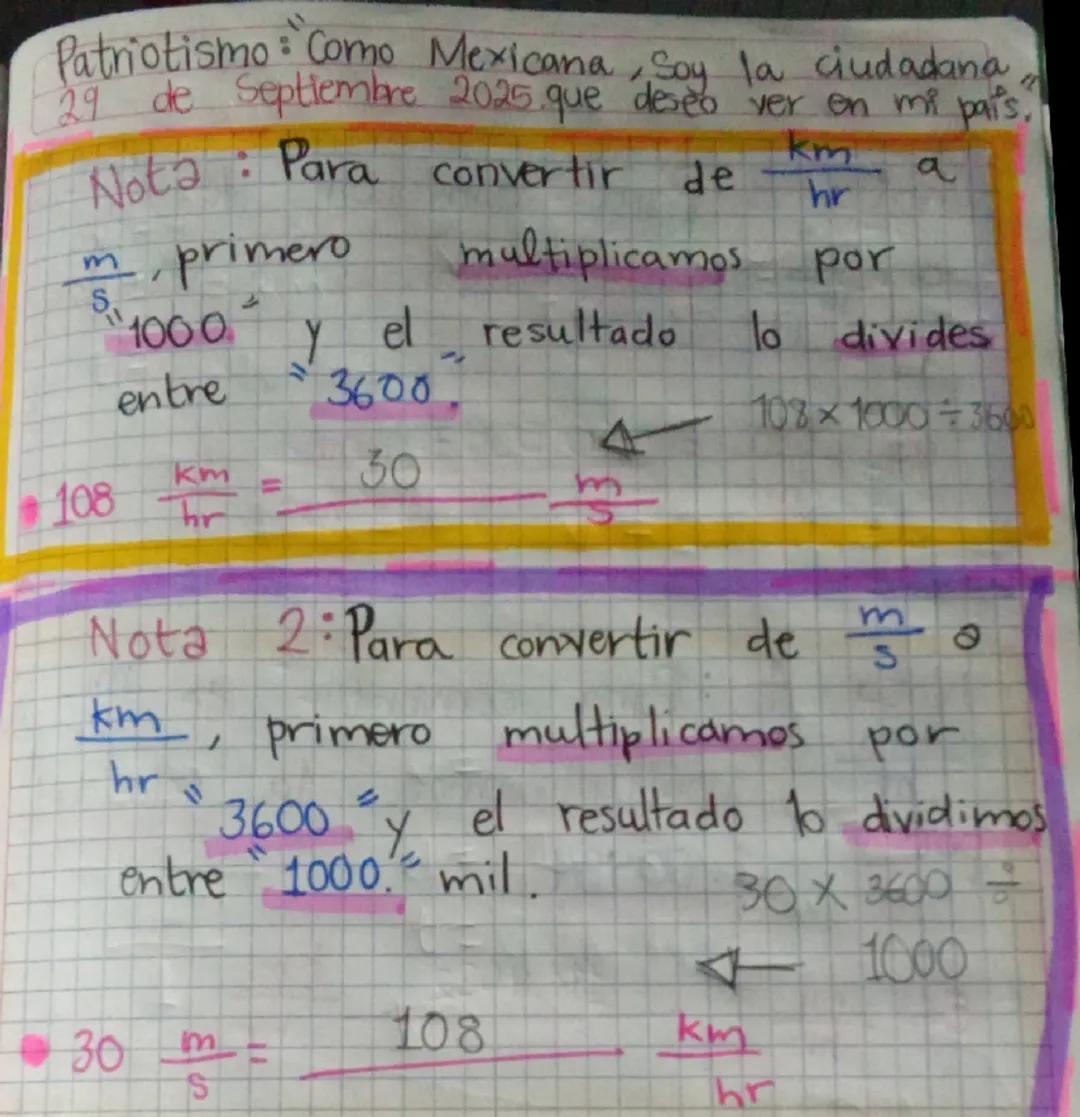 Patriotismo: "Como Mexicana, Soy la ciudadana
29 de Septiembre 2025. que deseo ver en mi país."
Nota: Para convertir de km/hr a
m/s, primero multiplicamos por
"1000" y el resultado lo divides
entre "3600".
108 x 1000 ÷ 3600
108 km/hr = 30 m/s
Nota 2: Para convertir de m/s a
km/hr, primero multiplicamos por
"3600" y el resultado lo dividimos
entre "1000." mil.
30 x 3600 ÷
1000
30 m/s = 108 km/hr